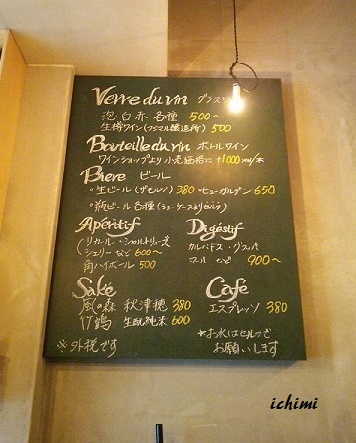 Verre du vin グラスワ
泡 白 赤 各種 500〜
生樽ワイン(フジマル醸造所) 500
Bouteille du vin ボトルワイン
ワインショップより 小売価格に +1000yen/本
Biere ビール
・生ビール(ザモルツ) 380 ・ヒューガルデン 650
・瓶ビール各種(ショーケースよりセルフ)
Apéritif
リカール・シャルトリューズ
シェリー など 600〜
角ハイボール 500
Digéstif
カルバドス・グラッパ
マール など 900〜
Saké
風の森 秋津穂 380
竹鶴 生酛純米 600
Café
エスプレッソ 380
*お水はセルフで
お願いします
※外税です
ichimi